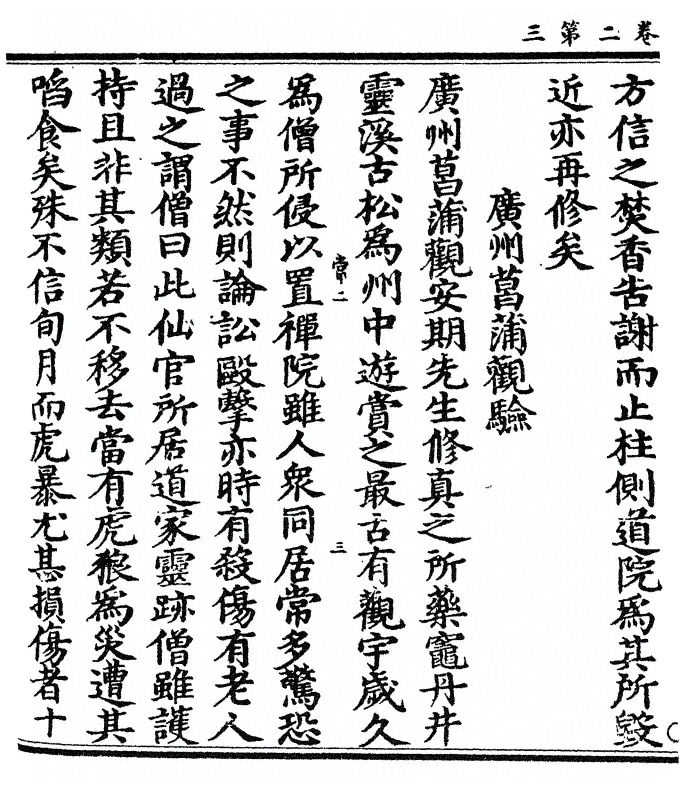 卷二第三
方信之焚香告謝而止柱側道院爲其所毀
近亦再修矣
廣州菖蒲觀驗
廣州菖蒲觀安期先生修真之所藥竈丹井
靈溪古松爲州中遊賞之最古有觀宇歲久
常二
三
爲僧所侵以置禪院雖人衆同居常多驚恐
之事不然則論訟毆擊亦時有殺傷有老人
過之謂僧曰此仙官所居道家靈跡僧雖護
持且非其類若不移去當有虎狼爲災遭其
啗食矣殊不信旬月而虎暴尤甚損傷者十